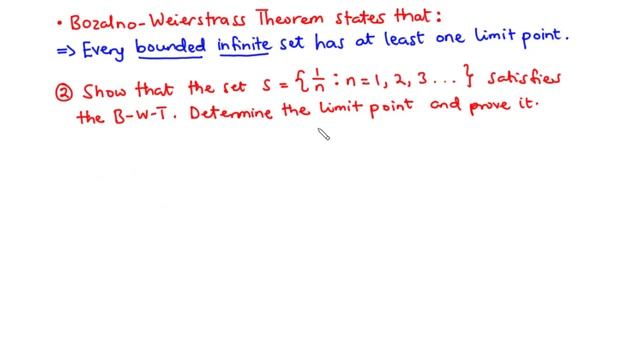 • Bozalno-Weierstrass Theorem states that:
⇒ Every bounded infinite set has at least one limit point.
② Show that the set S = { 1/n : n = 1, 2, 3 ... } satisfies
the B-W-T. Determine the limit point and prove it.